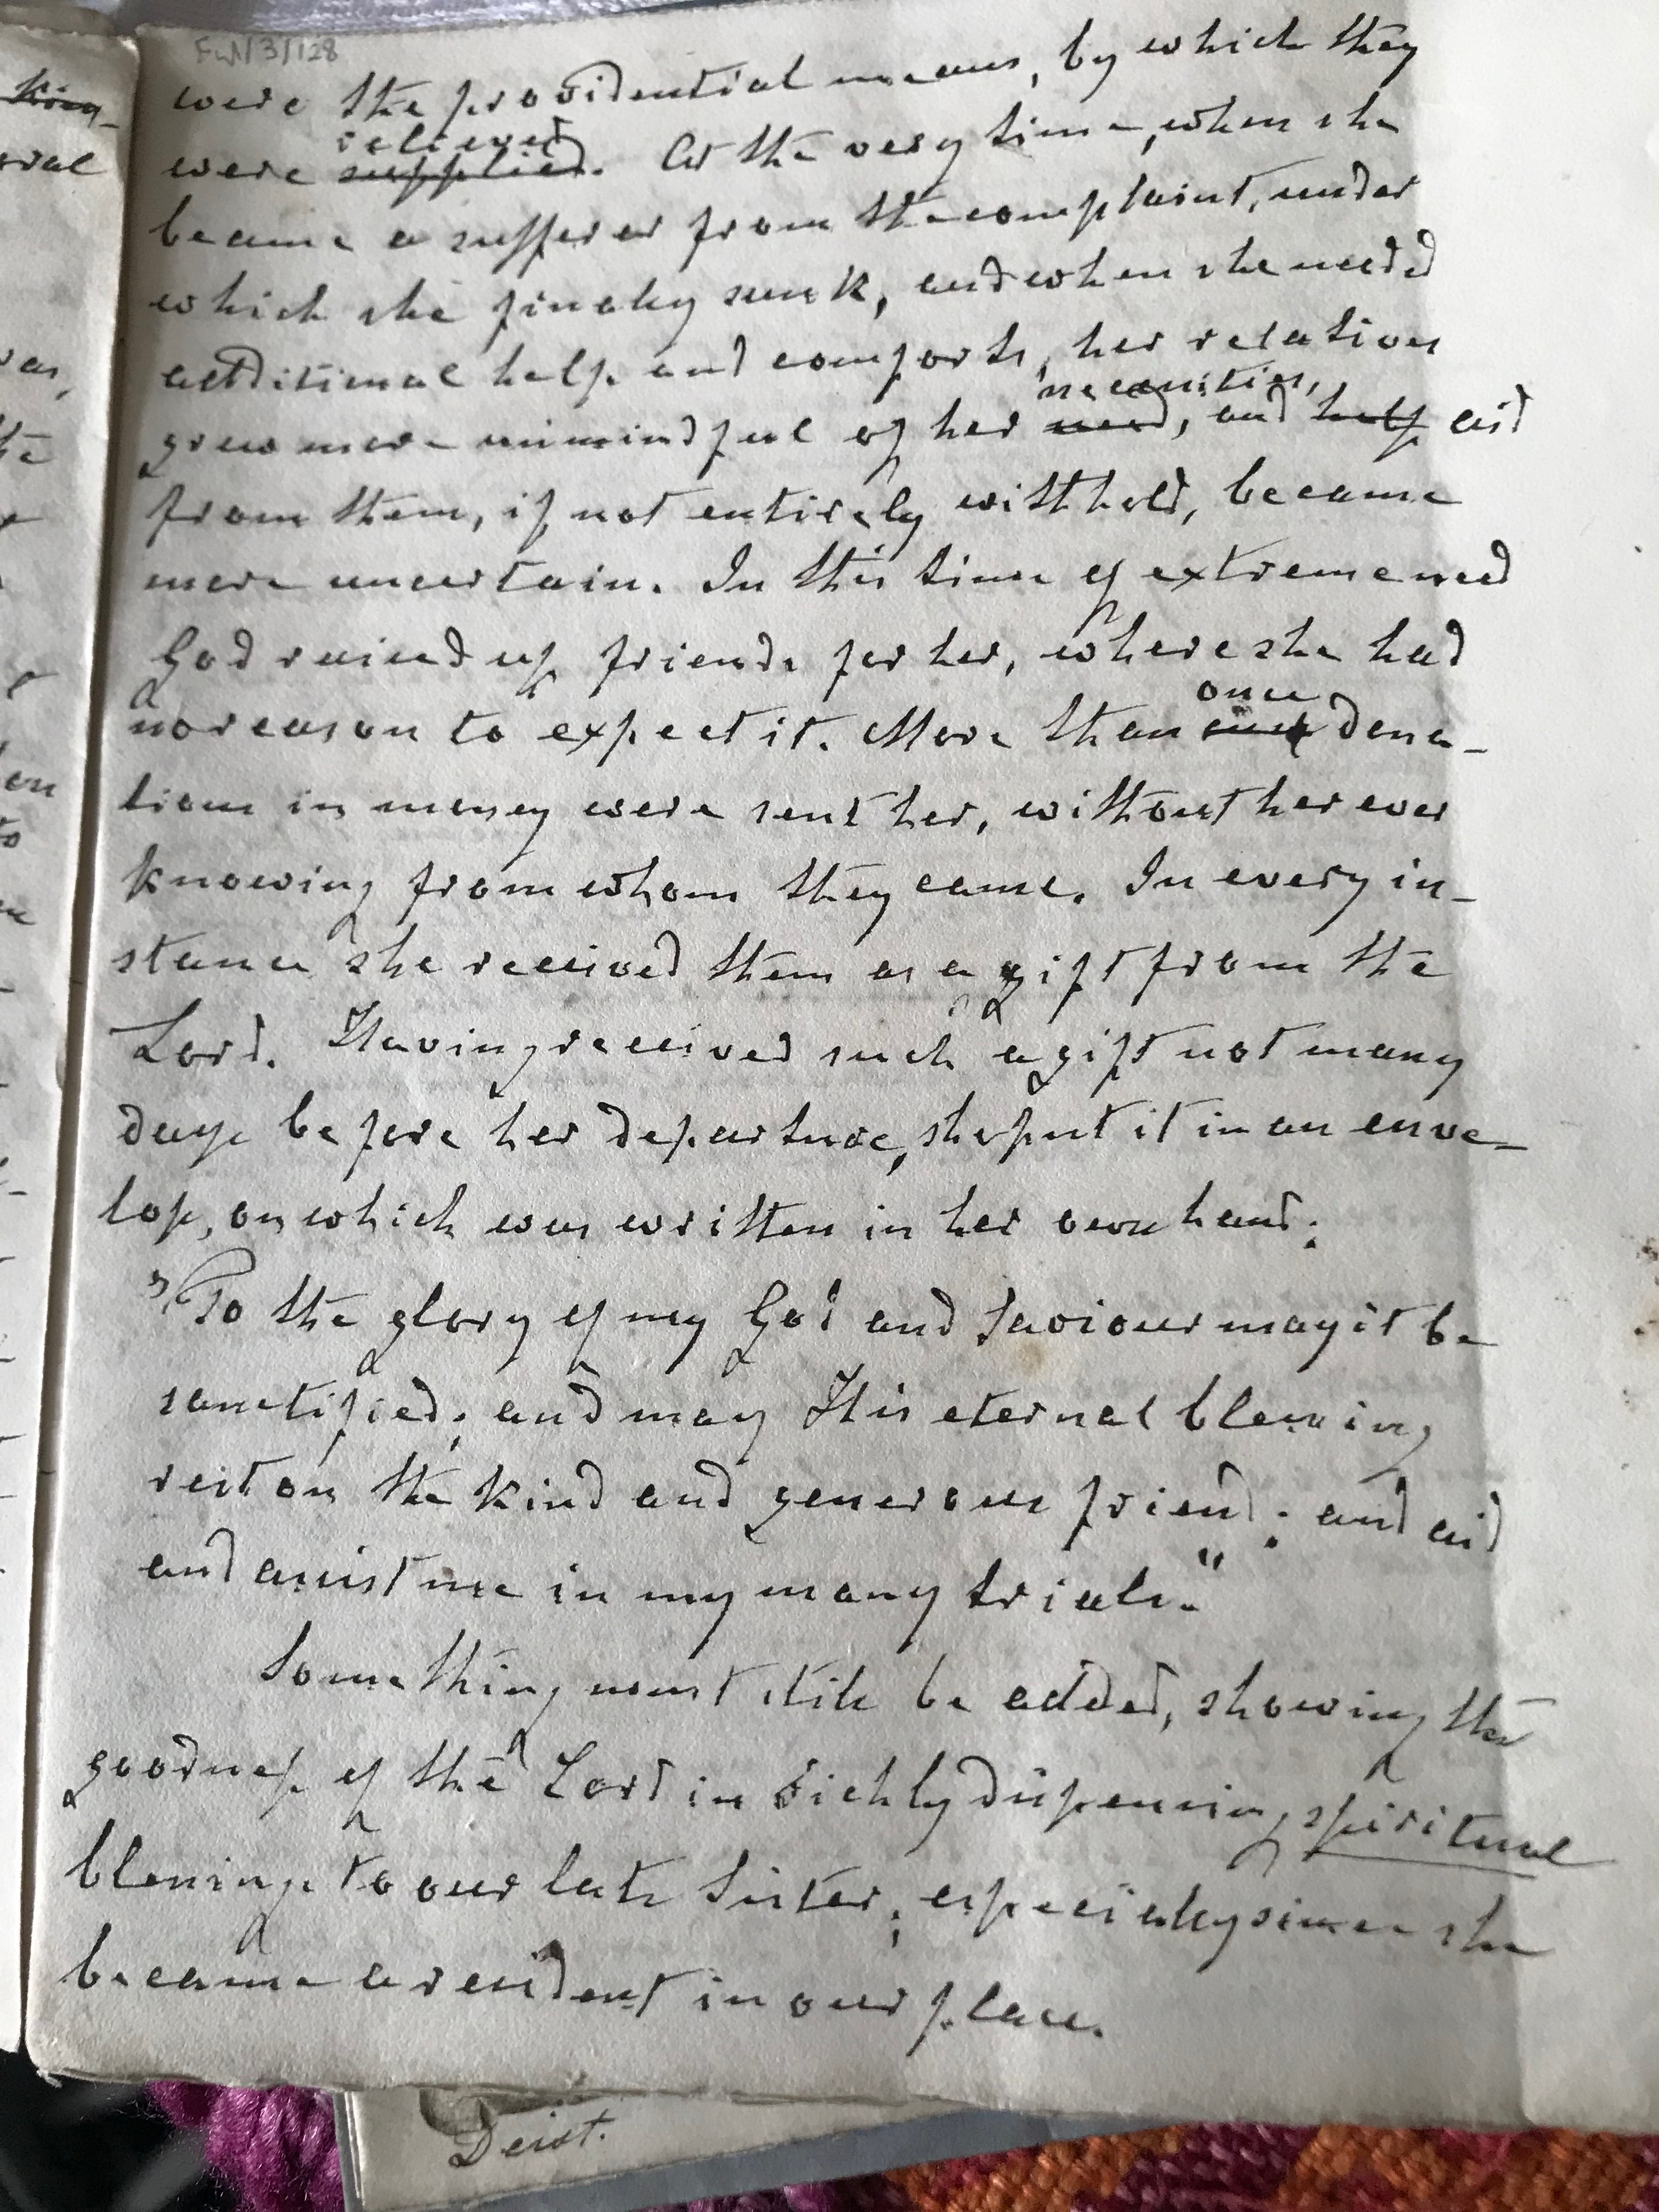 FWN/3/128
were the providential means, by which they
relieved
were supplied. At the very time, when she
became a sufferer from the complaint, under
which she finally sunk, and when she needed
additional help and comforts, her relations
necessities,
grew more unmindful of her need, and help aid
from them, if not entirely withheld, became
more uncertain. In this time of extreme need
God raised up friends for her, where she had
no reason to expect it. More than once dona-
once
tions in money were sent her, without her ever
knowing from whom they came. In every in-
stance she received them as a gift from the
Lord. Having received such a gift not many
days before her departure, she put it in an enve-
lop, on which was written in her own hand:
"To the glory of my God and Saviour may it be
sanctified; and may His eternal blessing
rest on the kind and generous friend; and aid
and assist me in my many trials."
Something must still be added, showing the
goodness of the Lord in richly dispensing spiritual
blessings to our late Sister, especially since she
became a resident in our place.
Deist.
oral
ras,
the
on
to